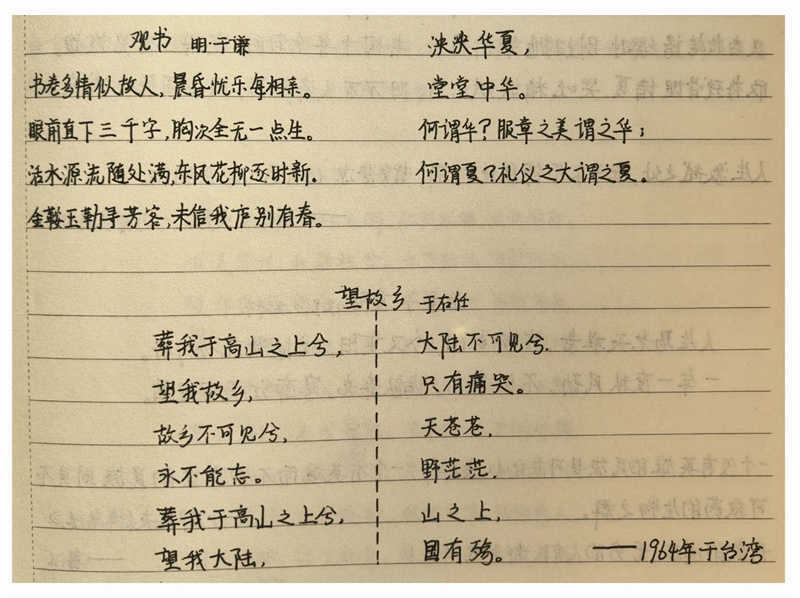 观书 明·于谦
书卷多情似故人,晨昏忧乐每相亲。
眼前直下三千字,胸次全无一点尘。
活水源流随处满,东风花柳逐时新。
金鞍玉勒寻芳客,未信我庐别有春。
泱泱华夏,
堂堂中华。
何谓华?服章之美谓之华;
何谓夏?礼仪之大谓之夏。
望故乡 于右任
葬我于高山之上兮,
望我故乡,
故乡不可见兮,
永不能忘。
葬我于高山之上兮,
望我大陆,
大陆不可见兮.
只有痛哭。
天苍苍,
野茫茫.
山之上,
国有殇。 ——1964年于台湾